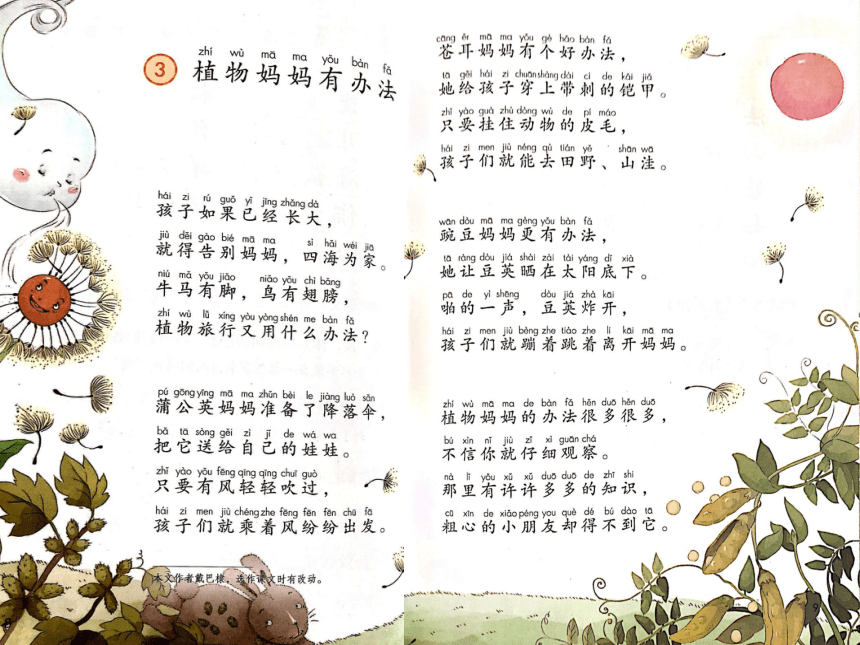 3
zhí wù mā ma yǒu bàn fǎ
植物妈妈有办法
hái zi rú guǒ yǐ jīng zhǎng dà
孩子如果已经长大，
jiù děi gào bié mā ma sì hǎi wéi jiā
就得告别妈妈，四海为家。
niú mǎ yǒu jiǎo niǎo yǒu chì bǎng
牛马有脚，鸟有翅膀，
zhí wù lǚ xíng yòu yòng shén me bàn fǎ
植物旅行又用什么办法？
pú gōng yīng mā ma zhǔn bèi le jiàng luò sǎn
蒲公英妈妈准备了降落伞，
bǎ tā sòng gěi zì jǐ de wá wa
把它送给自己的娃娃。
zhǐ yào yǒu fēng qīng qīng chuī guò
只要有风轻轻吹过，
hái zi men jiù chéng zhe fēng fēn fēn chū fā
孩子们就乘着风纷纷出发。
本文作者戴巴棣，选作课文时有改动。
8
cāng ěr mā ma yǒu gè hǎo bàn fǎ
苍耳妈妈有个好办法，
tā gěi hái zi chuān shàng dài cì de kǎi jiǎ
她给孩子穿上带刺的铠甲。
zhǐ yào guà zhù dòng wù de pí máo
只要挂住动物的皮毛，
hái zi men jiù néng qù tián yě shān wā
孩子们就能去田野、山洼。
wān dòu mā ma gèng yǒu bàn fǎ
豌豆妈妈更有办法，
tā ràng dòu jiá shài zài tài yáng dǐ xià
她让豆荚晒在太阳底下。
pā de yì shēng dòu jiá zhà kāi
啪的一声，豆荚炸开，
hái zi men jiù bèng zhe tiào zhe lí kāi mā ma
孩子们就蹦着跳着离开妈妈。
zhí wù mā ma de bàn fǎ hěn duō hěn duō
植物妈妈的办法很多很多，
bú xìn nǐ jiù zǐ xì guān chá
不信你就仔细观察。
nà lǐ yǒu xǔ xǔ duō duō de zhī shi
那里有许许多多的知识，
cū xīn de xiǎo péng you què dé bú dào tā
粗心的小朋友却得不到它。
9